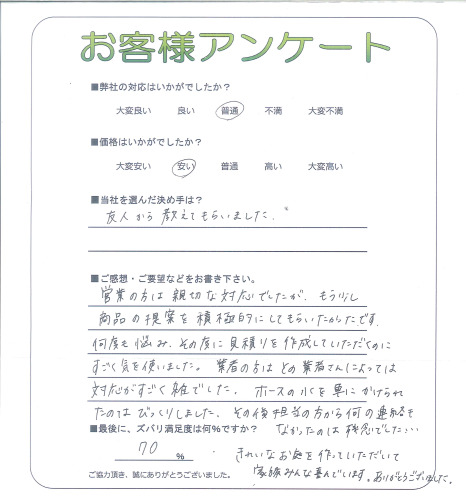 お客様アンケート
■弊社の対応はいかがでしたか？
大変良い 良い 普通 不満 大変不満
■価格はいかがでしたか？
大変安い 安い 普通 高い 大変高い
■当社を選んだ決め手は？
友人から教えてもらいました。
■ご感想・ご要望などをお書き下さい。
営業の方は親切な対応でしたが、もう少し
商品の提案を積極的にしてもらいたかったです。
何度も悩み、その度に見積りを作成していただくのに
すごく気を使いました。業者の方はどの業者さんによっては
対応がすごく雑でした。ホースの水を車にかけられ
たのはびっくりしました。その後担当の方から何の連絡も
なかったのは残念でした…
■最後に、ズバリ満足度は何%ですか？
70 %
きれいなお庭を作っていただいて
家族みんな喜んでいます。ありがとうございました。
ご協力頂き、誠にありがとうございました。